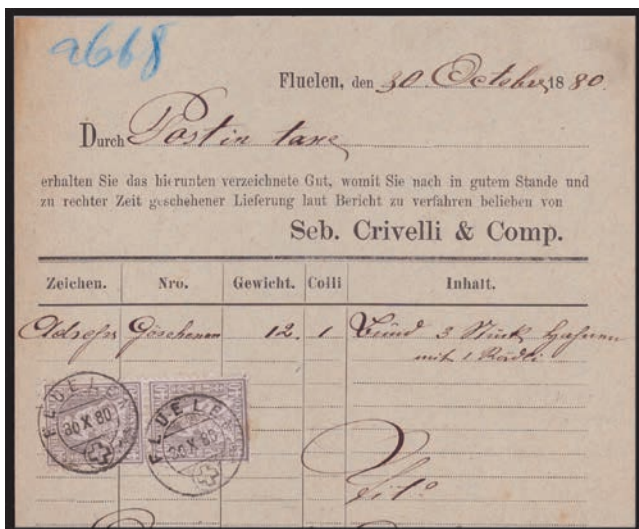 a668
Fluelen, den 30. October 1880.
Durch Post in taxe
erhalten Sie das hierunten verzeichnete Gut, womit Sie nach in gutem Stande und
zu rechter Zeit geschehener Lieferung laut Bericht zu verfahren belieben von
Seb. Crivelli & Comp.
Zeichen. Nro. Gewicht. Colli Inhalt.
Adresse Göschenen 12. 1 Bund 3 Stück Hahnen
mit 1 Rädli
FLUELEN 30 X 80
FLUELEN 30 X 80